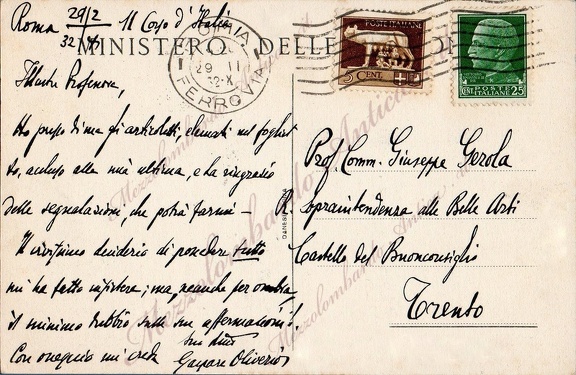 Roma 29/2 32 11 Corso d'Italia
MINISTERO DELLE
ROMA
29 II
32-X
FERROVIA
POSTE ITALIANE
5 CENT.
POSTE ITALIANE
CENT 25
Illustre Professore,
Ho preso di ma gli articoletti, elencati nel fogliet
to, accluso alla mia ultima, e La ringrazio
delle segnalazioni, che potrà farmi –
Il vivissimo desiderio di possedere tutto
mi ha fatto insistere; ma, neanche per ombra,
il minimo dubbio sulle sue affermazioni!
Con ossequio mi creda
Suo dev.
Gaspare Oliverio
Prof. Comm. Giuseppe Gerola
R. Sopraintendenza alle Belle Arti
Castello del Buonconsiglio
Trento
Mezzolombardo Antica
Mezzolombardo Antica